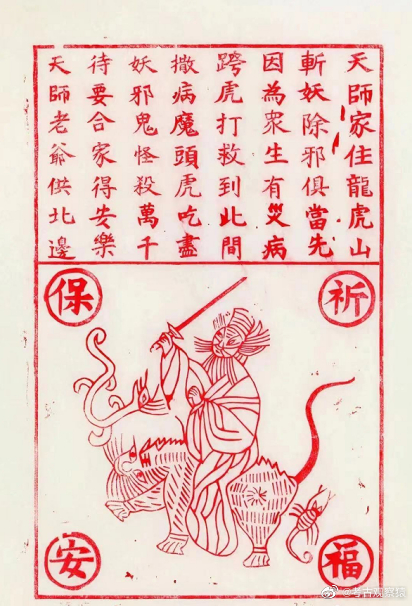 天師家住龍虎山
斬妖除邪俱當先
因為眾生有災病
跨虎打救到此間
撒病魔頭虎吃盡
妖邪鬼怪殺萬千
待要合家得安樂
天師老爺供北邊
祈
福
保
安
王
@考古观察猿